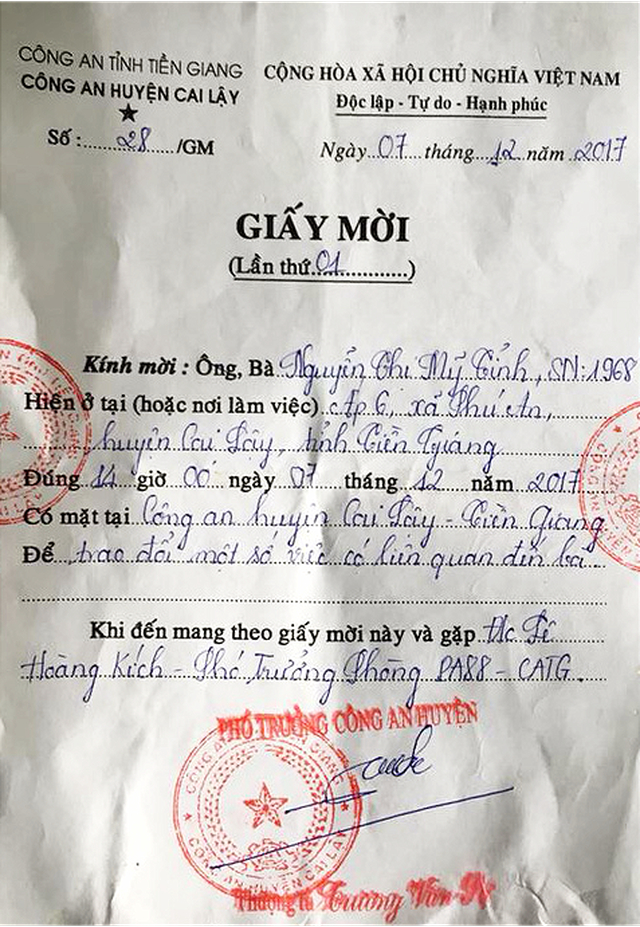 CÔNG AN TỈNH TIỀN GIANG
CÔNG AN HUYỆN CAI LẬY
Số : 28 /GM
CỘNG HÒA XÃ HỘI CHỦ NGHĨA VIỆT NAM
Độc lập - Tự do - Hạnh phúc
Ngày 07 tháng 12 năm 2017
GIẤY MỜI
(Lần thứ 01)
Kính mời : Ông, Bà Nguyễn Thị Mỹ , SN: 1968
Hiện ở tại (hoặc nơi làm việc) ấp 6, xã Phú An,
huyện Cai Lậy, tỉnh Tiền Giang
Đúng 14 giờ 00 ngày 07 tháng 12 năm 2017
Có mặt tại Công an huyện Cai Lậy - Tiền Giang
Để trao đổi một số việc có liên quan đến bà
Khi đến mang theo giấy mời này và gặp Đ/c Lê
Hoàng Kích - Phó Trưởng Phòng PA88 - CATG.
PHÓ TRƯỞNG CÔNG AN HUYỆN
CÔNG AN HUYỆN CAI LẬY
Thượng tá Trương Văn